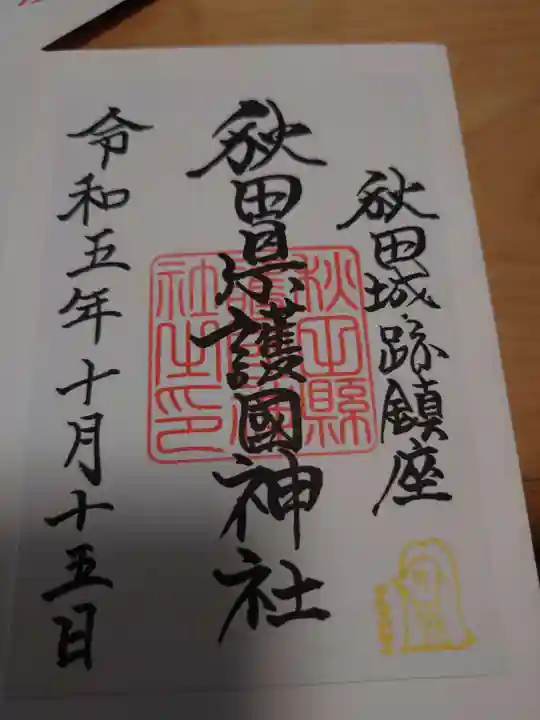 秋田城跡鎮座
秋田県護國神社
秋田縣護國神社之印
令和五年十月十五日